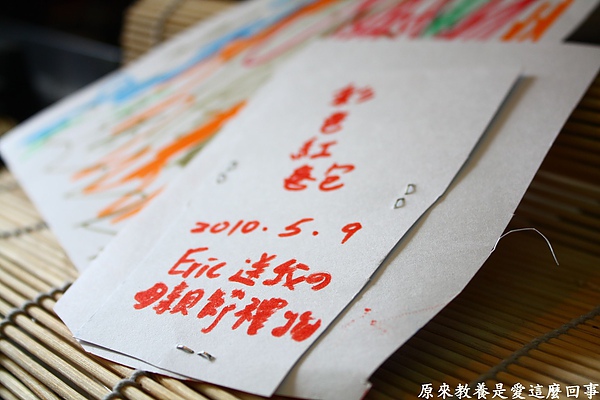 彩
色
紅
包
2010.5.9
Eric 送我の
母親節禮物
原來教養是愛這麼回事